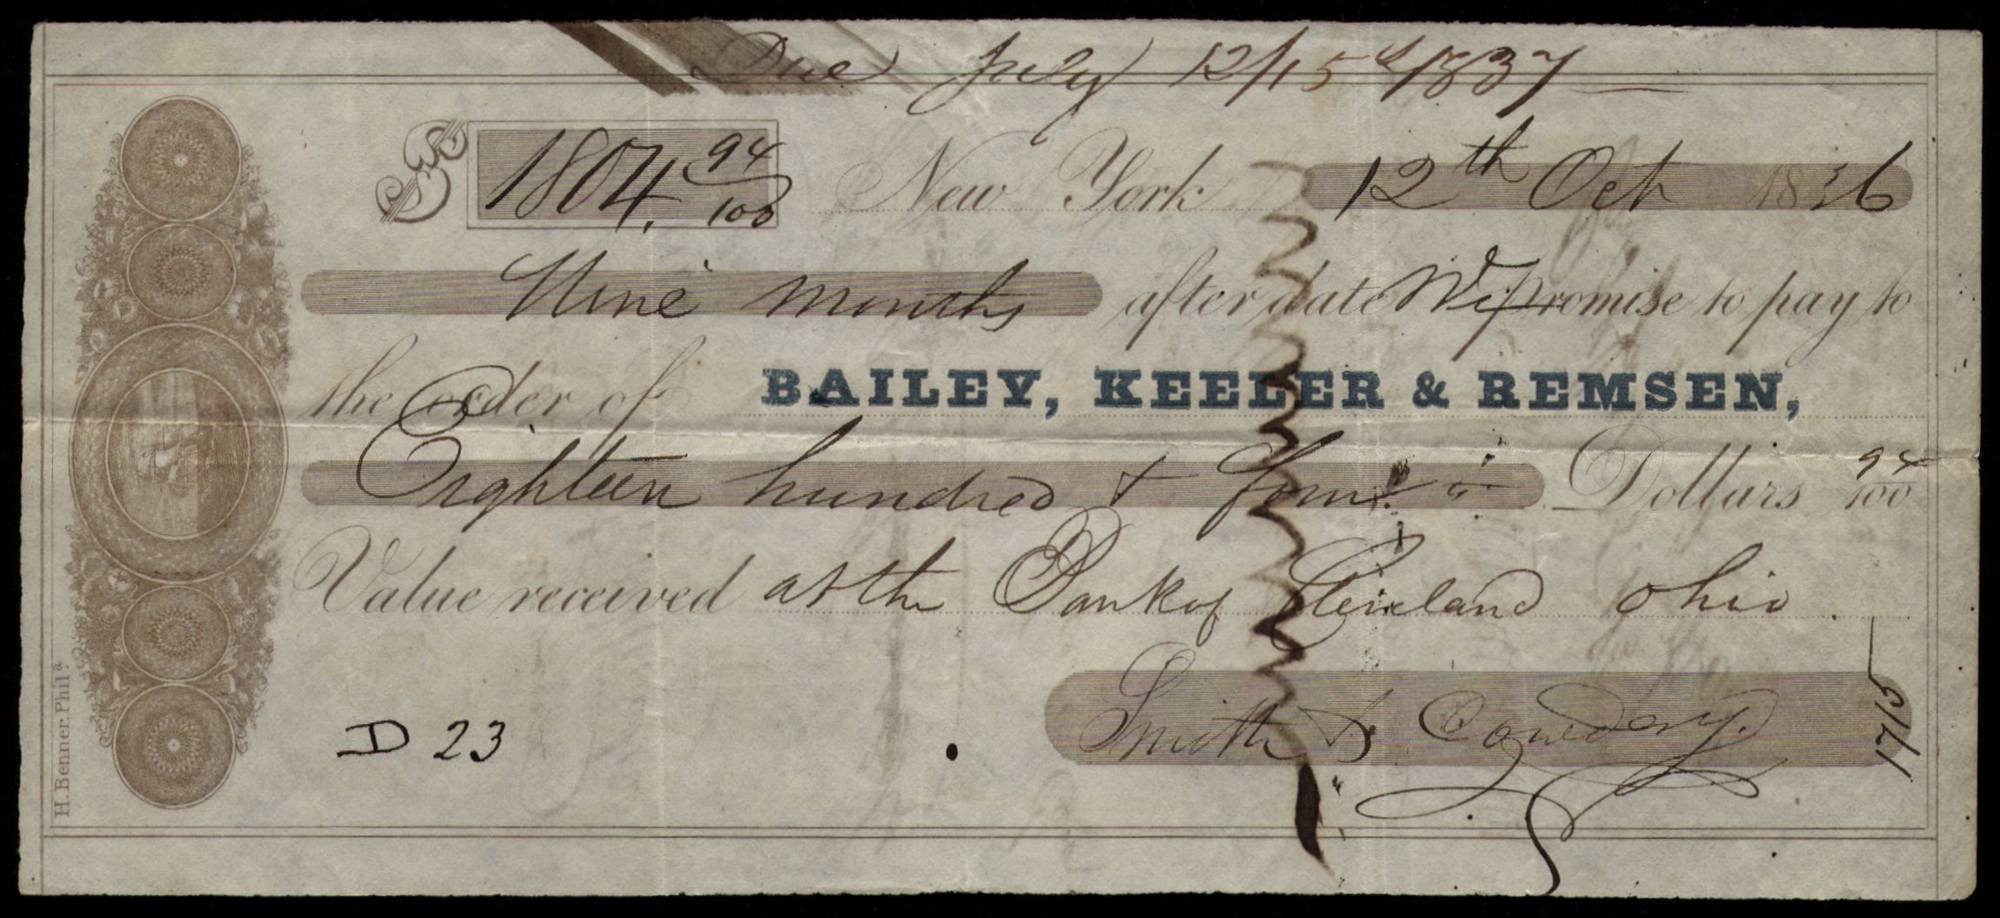 Due July 12/15th 1837
$ 1804. 94/100 New York 12th Oct 1836
Nine months after date We promise to pay to
the order of BAILEY, KEELER & REMSEN,
Eighteen hundred + four Dollars 94/100
Value received at the Bank of Cleiveland ohio.
Smith & Cowdery.
1715
D 23
H. Benner, Phila